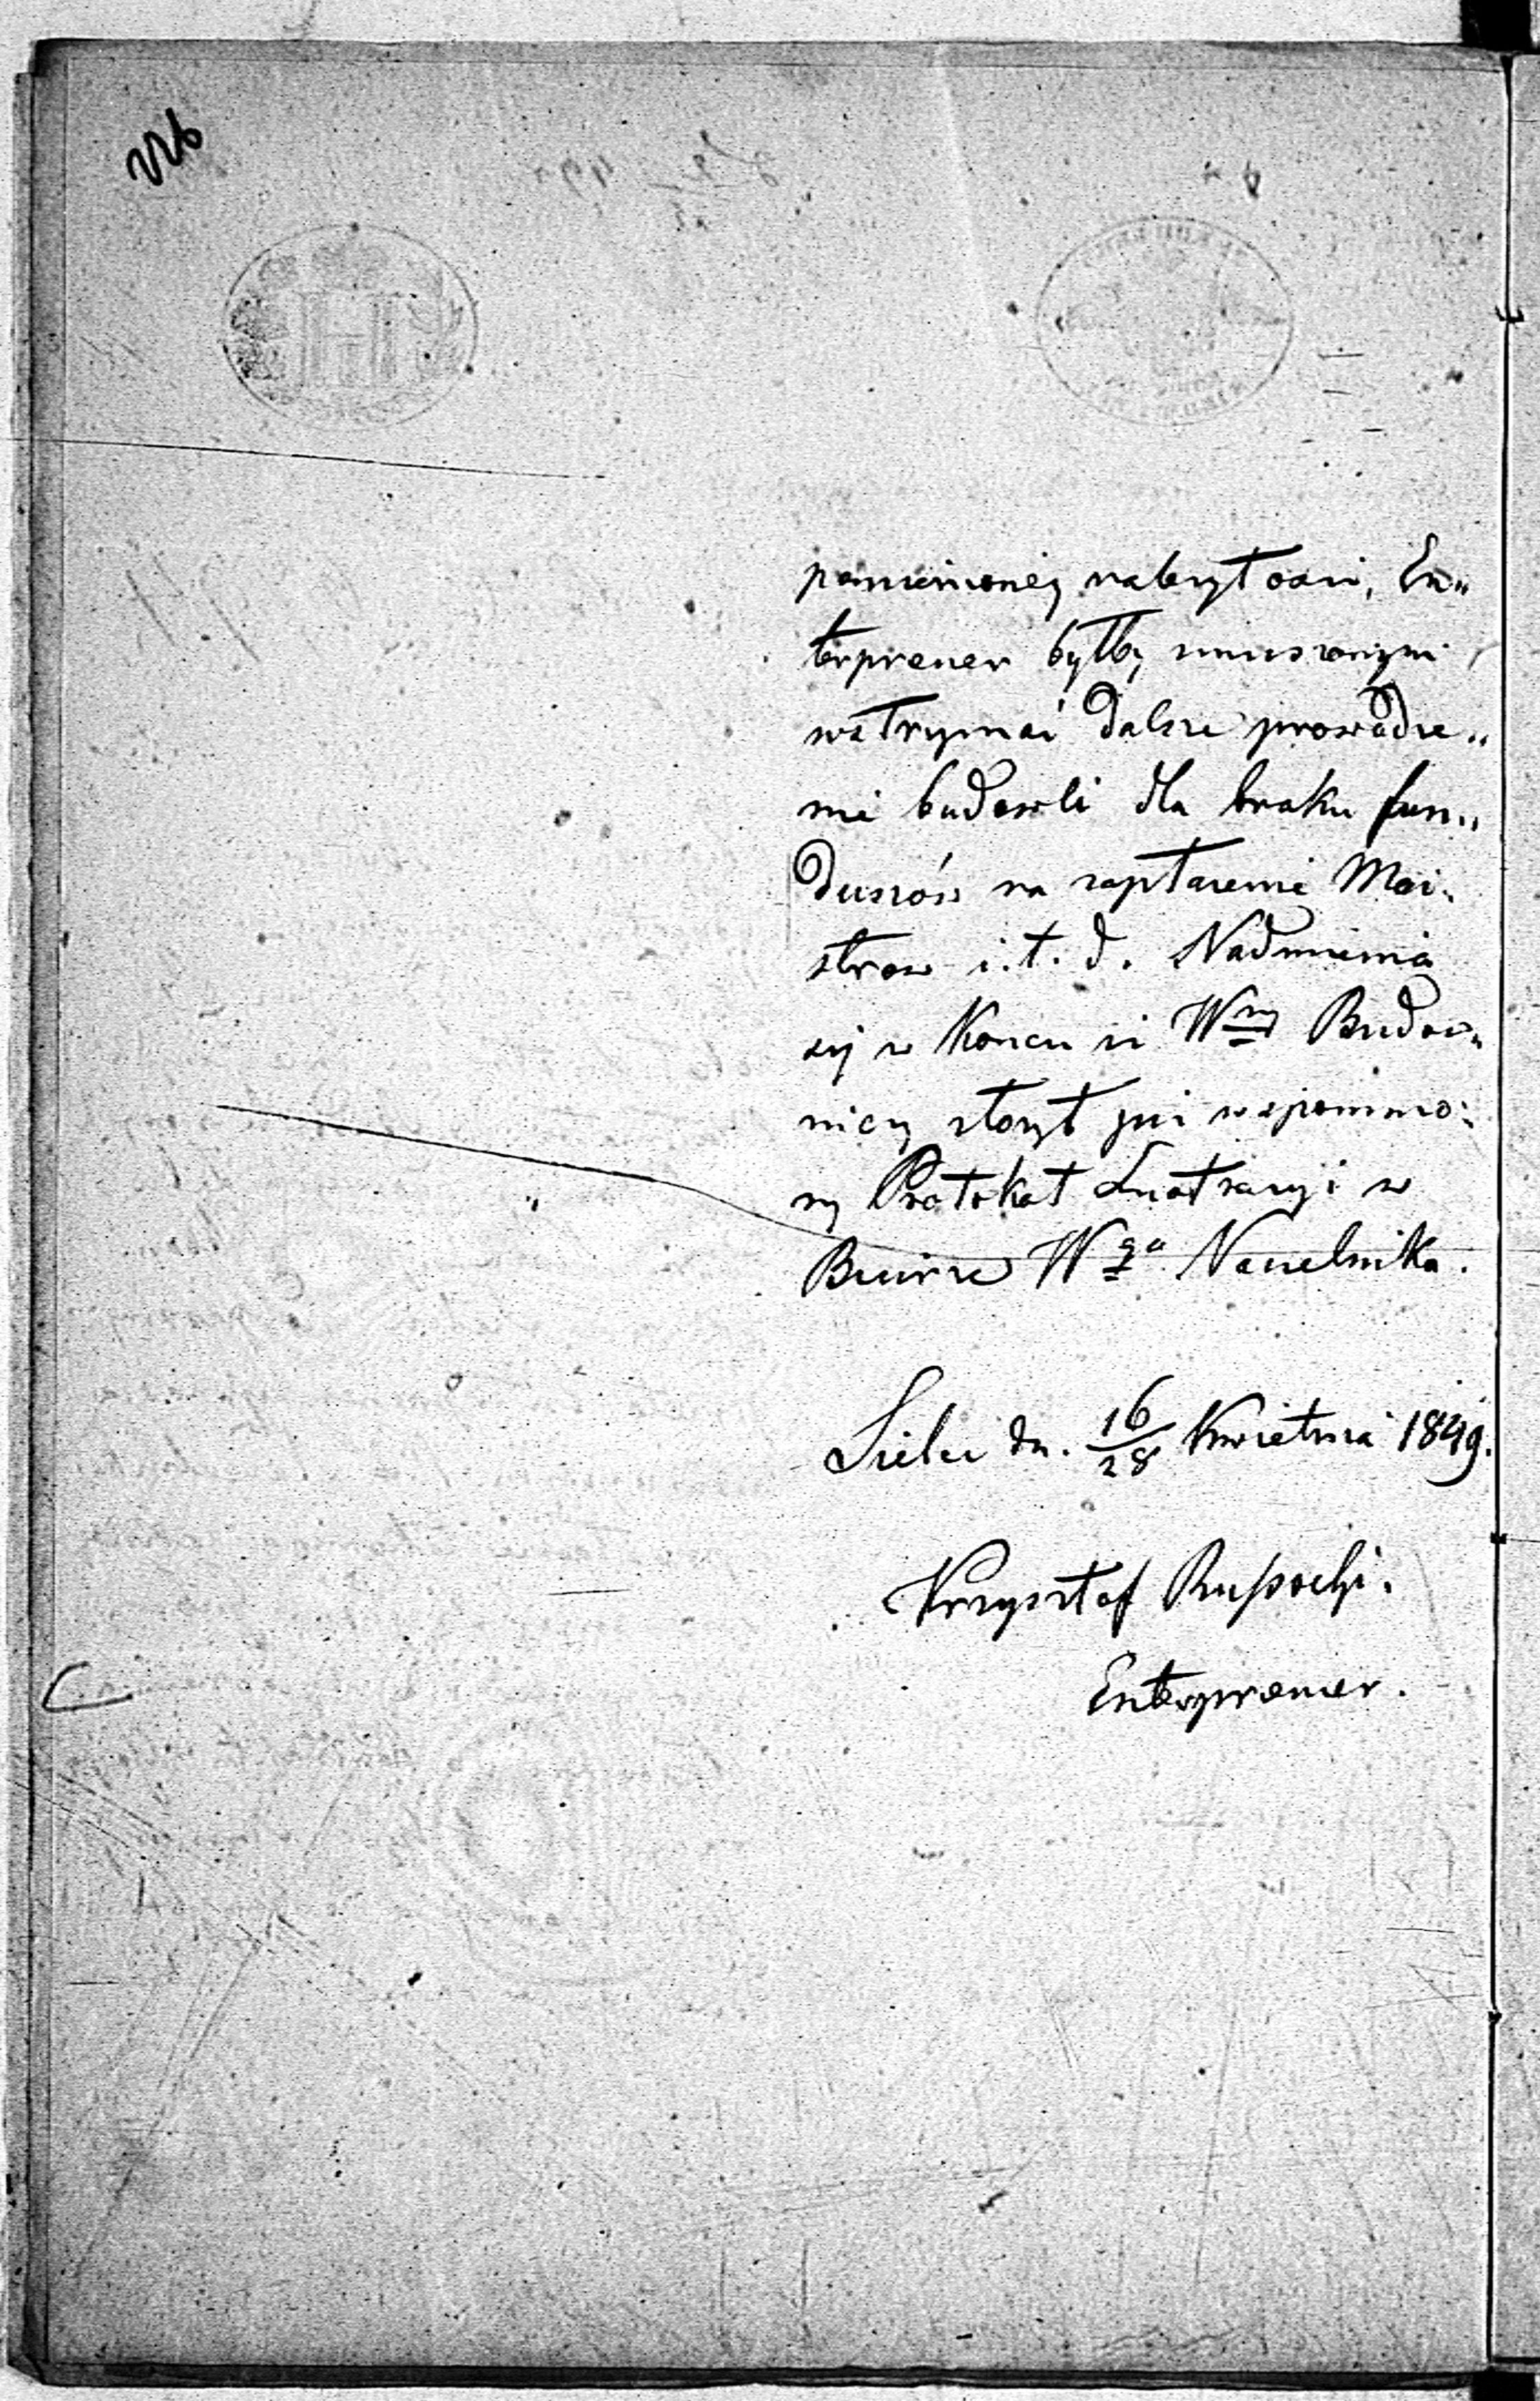 226
pomienioney należytości, En„
terprener byłby zmuszonym
wstrzymać dalsze prowadze„
nie budowli dla braku fun„
duszów na zapłacenie Mai„
strow i. t. d. Nadmienia
się w końcu iż Wny Budow„
niczy złożył już wspomnio„
ny Protokół Lustracyi w
Biurze Wgo Naczelnika.
Sielce dn. 16/28 Kwietnia 1849.
Krzysztof
Enterprener.